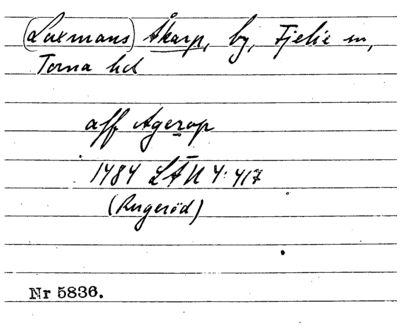 (Laxmans) Åkarp, by, Fjelie sn,
Torna hd
aff Agerop
1484 LÄU 4:417
(Rugeröd)
Nr 5836.